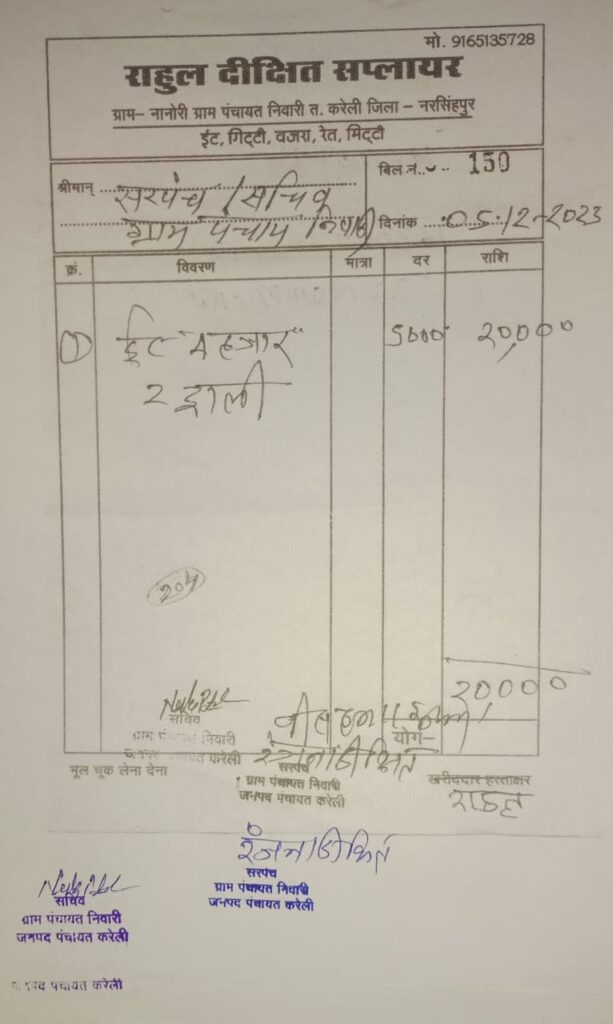 मो. 9165135728
राहुल दीक्षित सप्लायर
ग्राम– नानोरी ग्राम पंचायत निवारी त. करेली जिला – नरसिंहपुर
ईंट, गिट्टी, वजरा, रेत, मिट्टी
श्रीमान् सरपंच / सचिव
बिल.न. 150
ग्राम पंचायत निवारी
दिनांक 05-12-2023
क्रं. विवरण मात्रा दर राशि
① ईट "4 हजार" 5000 20,000
2 ट्राली
204
20000
बीस हजार
योग–
सचिव
ग्राम पंचायत निवारी
जनपद पंचायत करेली
रंजना दीक्षित
सरपंच
ग्राम पंचायत निवारी
जनपद पंचायत करेली
भूल चूक लेना देना
खरीददार हस्ताक्षर
राहुल
रंजना दीक्षित
सरपंच
ग्राम पंचायत निवारी
जनपद पंचायत करेली
सचिव
ग्राम पंचायत निवारी
जनपद पंचायत करेली
जनपद पंचायत करेली